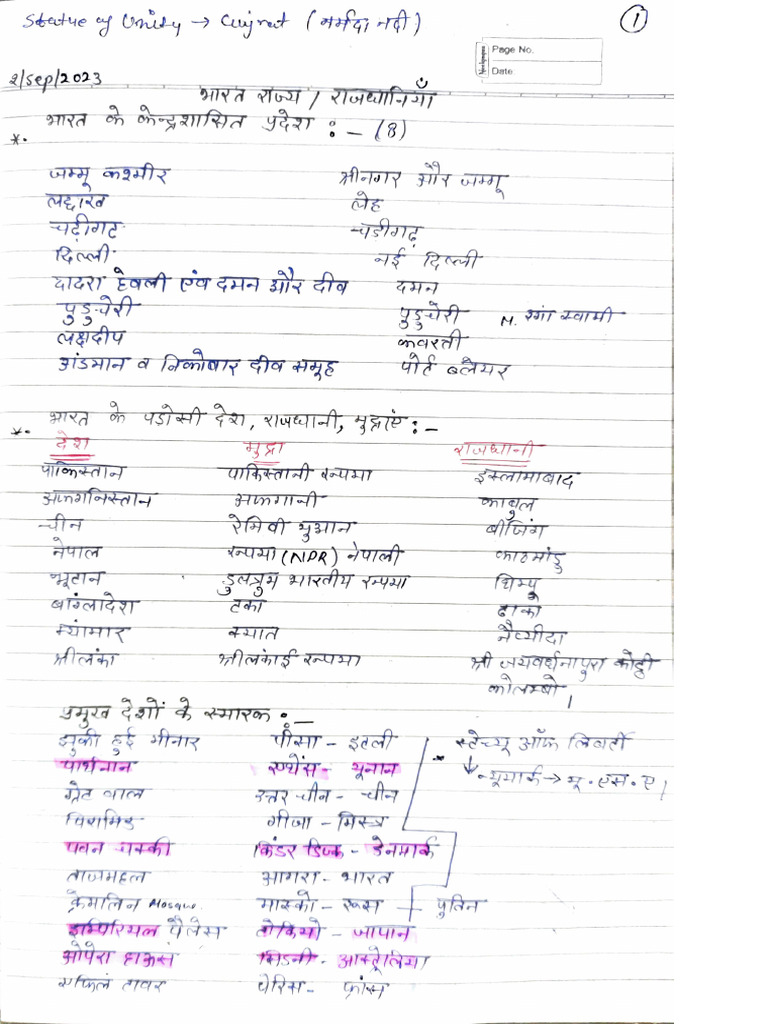 Statue of Unity → Gujrat (नर्मदा नदी)
1
Page No.
Date
2/Sep/2023
भारत राज्य / राजधानियाँ
* भारत के केन्द्रशासित प्रदेश :- (8)
जम्मू कश्मीर श्रीनगर और जम्मू
लद्दाख लेह
चडीगढ चडीगढ़
दिल्ली नई दिल्ली
दादरा हेवली एंव दमन और दीव दमन
पुडुचेरी पुडुचेरी N. रंगा स्वामी
लक्षदीप कवरती
अंडमान व निकोबार दीव समूह पोर्ट ब्लेयर
* भारत के पडोसी देश, राजधानी, मुद्राएं :-
देश मुद्रा राजधानी
पाकिस्तान पाकिस्तानी रुपया इस्लामाबाद
अफगनिस्तान अफगानी काबुल
चीन रेमिबी युआन बीजिंग
नेपाल रुपया (NPR) नेपाली काठमांडु
भूटान डुलत्रुम भारतीय रुपया थिम्पू
बांग्लादेश टका ढाका
म्यांमार क्यात नैप्यीदा
श्रीलंका श्रीलंकाई रुपया श्री जयवर्धनापुरा कोट्टी
कोलम्बो।
प्रमुख देशों के स्मारक :-
झुकी हुई मीनार पीसा - इटली * स्टेच्यू ऑफ लिबर्टी
पार्थनान एथेंस - यूनान ↓ न्यूयार्क → यू.एस.ए।
ग्रेट वाल उत्तर चीन - चीन
पिरामिड गीजा - मिस्त्र
पवन चक्की किंडर डिज्क - डेनमार्क
ताजमहल आगरा - भारत
क्रेमालिन मास्को - रूस पुतिन
इम्पिरियल पैलेस टोकियो - जापान
ओपेरा हाऊस सिडनी - आस्ट्रेलिया
एफिल टावर पेरिस - फ्रांस